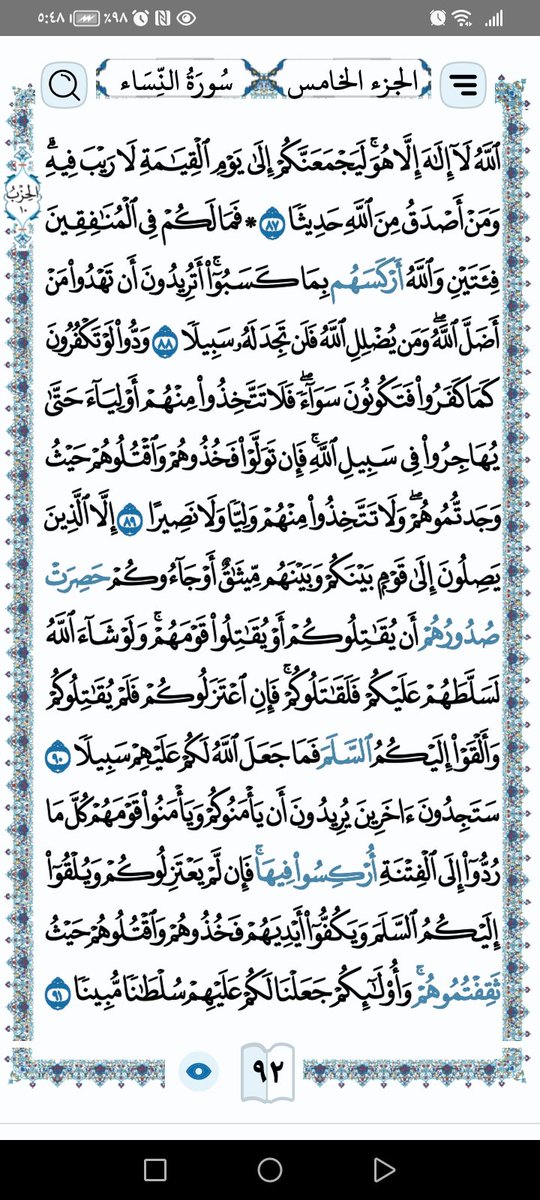 ٥:٤٨ ٪٩٨
الجزء الخامس سُورَةُ النِّسَاء
الحِزْبُ
١٠
ٱللَّهُ لَآ إِلَٰهَ إِلَّا هُوَۚ لَيَجْمَعَنَّكُمْ إِلَىٰ يَوْمِ ٱلْقِيَٰمَةِ لَا رَيْبَ فِيهِۗ
وَمَنْ أَصْدَقُ مِنَ ٱللَّهِ حَدِيثًا ٨٧ * فَمَا لَكُمْ فِى ٱلْمُنَٰفِقِينَ
فِئَتَيْنِ وَٱللَّهُ أَرْكَسَهُم بِمَا كَسَبُوٓا۟ۚ أَتُرِيدُونَ أَن تَهْدُوا۟ مَنْ
أَضَلَّ ٱللَّهُۖ وَمَن يُضْلِلِ ٱللَّهُ فَلَن تَجِدَ لَهُۥ سَبِيلًا ٨٨ وَدُّوا۟ لَوْ تَكْفُرُونَ
كَمَا كَفَرُوا۟ فَتَكُونُونَ سَوَآءًۖ فَلَا تَتَّخِذُوا۟ مِنْهُمْ أَوْلِيَآءَ حَتَّىٰ
يُهَاجِرُوا۟ فِى سَبِيلِ ٱللَّهِۚ فَإِن تَوَلَّوْا۟ فَخُذُوهُمْ وَٱقْتُلُوهُمْ حَيْثُ
وَجَدتُّمُوهُمْۖ وَلَا تَتَّخِذُوا۟ مِنْهُمْ وَلِيًّا وَلَا نَصِيرًا ٨٩ إِلَّا ٱلَّذِينَ
يَصِلُونَ إِلَىٰ قَوْمٍۭ بَيْنَكُمْ وَبَيْنَهُم مِّيثَٰقٌ أَوْ جَآءُوكُمْ حَصِرَتْ
صُدُورُهُمْ أَن يُقَٰتِلُوكُمْ أَوْ يُقَٰتِلُوا۟ قَوْمَهُمْۚ وَلَوْ شَآءَ ٱللَّهُ
لَسَلَّطَهُمْ عَلَيْكُمْ فَلَقَٰتَلُوكُمْۚ فَإِنِ ٱعْتَزَلُوكُمْ فَلَمْ يُقَٰتِلُوكُمْ
وَأَلْقَوْا۟ إِلَيْكُمُ ٱلسَّلَمَ فَمَا جَعَلَ ٱللَّهُ لَكُمْ عَلَيْهِمْ سَبِيلًا ٩٠
سَتَجِدُونَ ءَاخَرِينَ يُرِيدُونَ أَن يَأْمَنُوكُمْ وَيَأْمَنُوا۟ قَوْمَهُمْ كُلَّ مَا
رُدُّوٓا۟ إِلَى ٱلْفِتْنَةِ أُرْكِسُوا۟ فِيهَاۚ فَإِن لَّمْ يَعْتَزِلُوكُمْ وَيُلْقُوٓا۟
إِلَيْكُمُ ٱلسَّلَمَ وَيَكُفُّوٓا۟ أَيْدِيَهُمْ فَخُذُوهُمْ وَٱقْتُلُوهُمْ حَيْثُ
ثَقِفْتُمُوهُمْۚ وَأُو۟لَٰٓئِكُمْ جَعَلْنَا لَكُمْ عَلَيْهِمْ سُلْطَٰنًا مُّبِينًا ٩١
٩٢